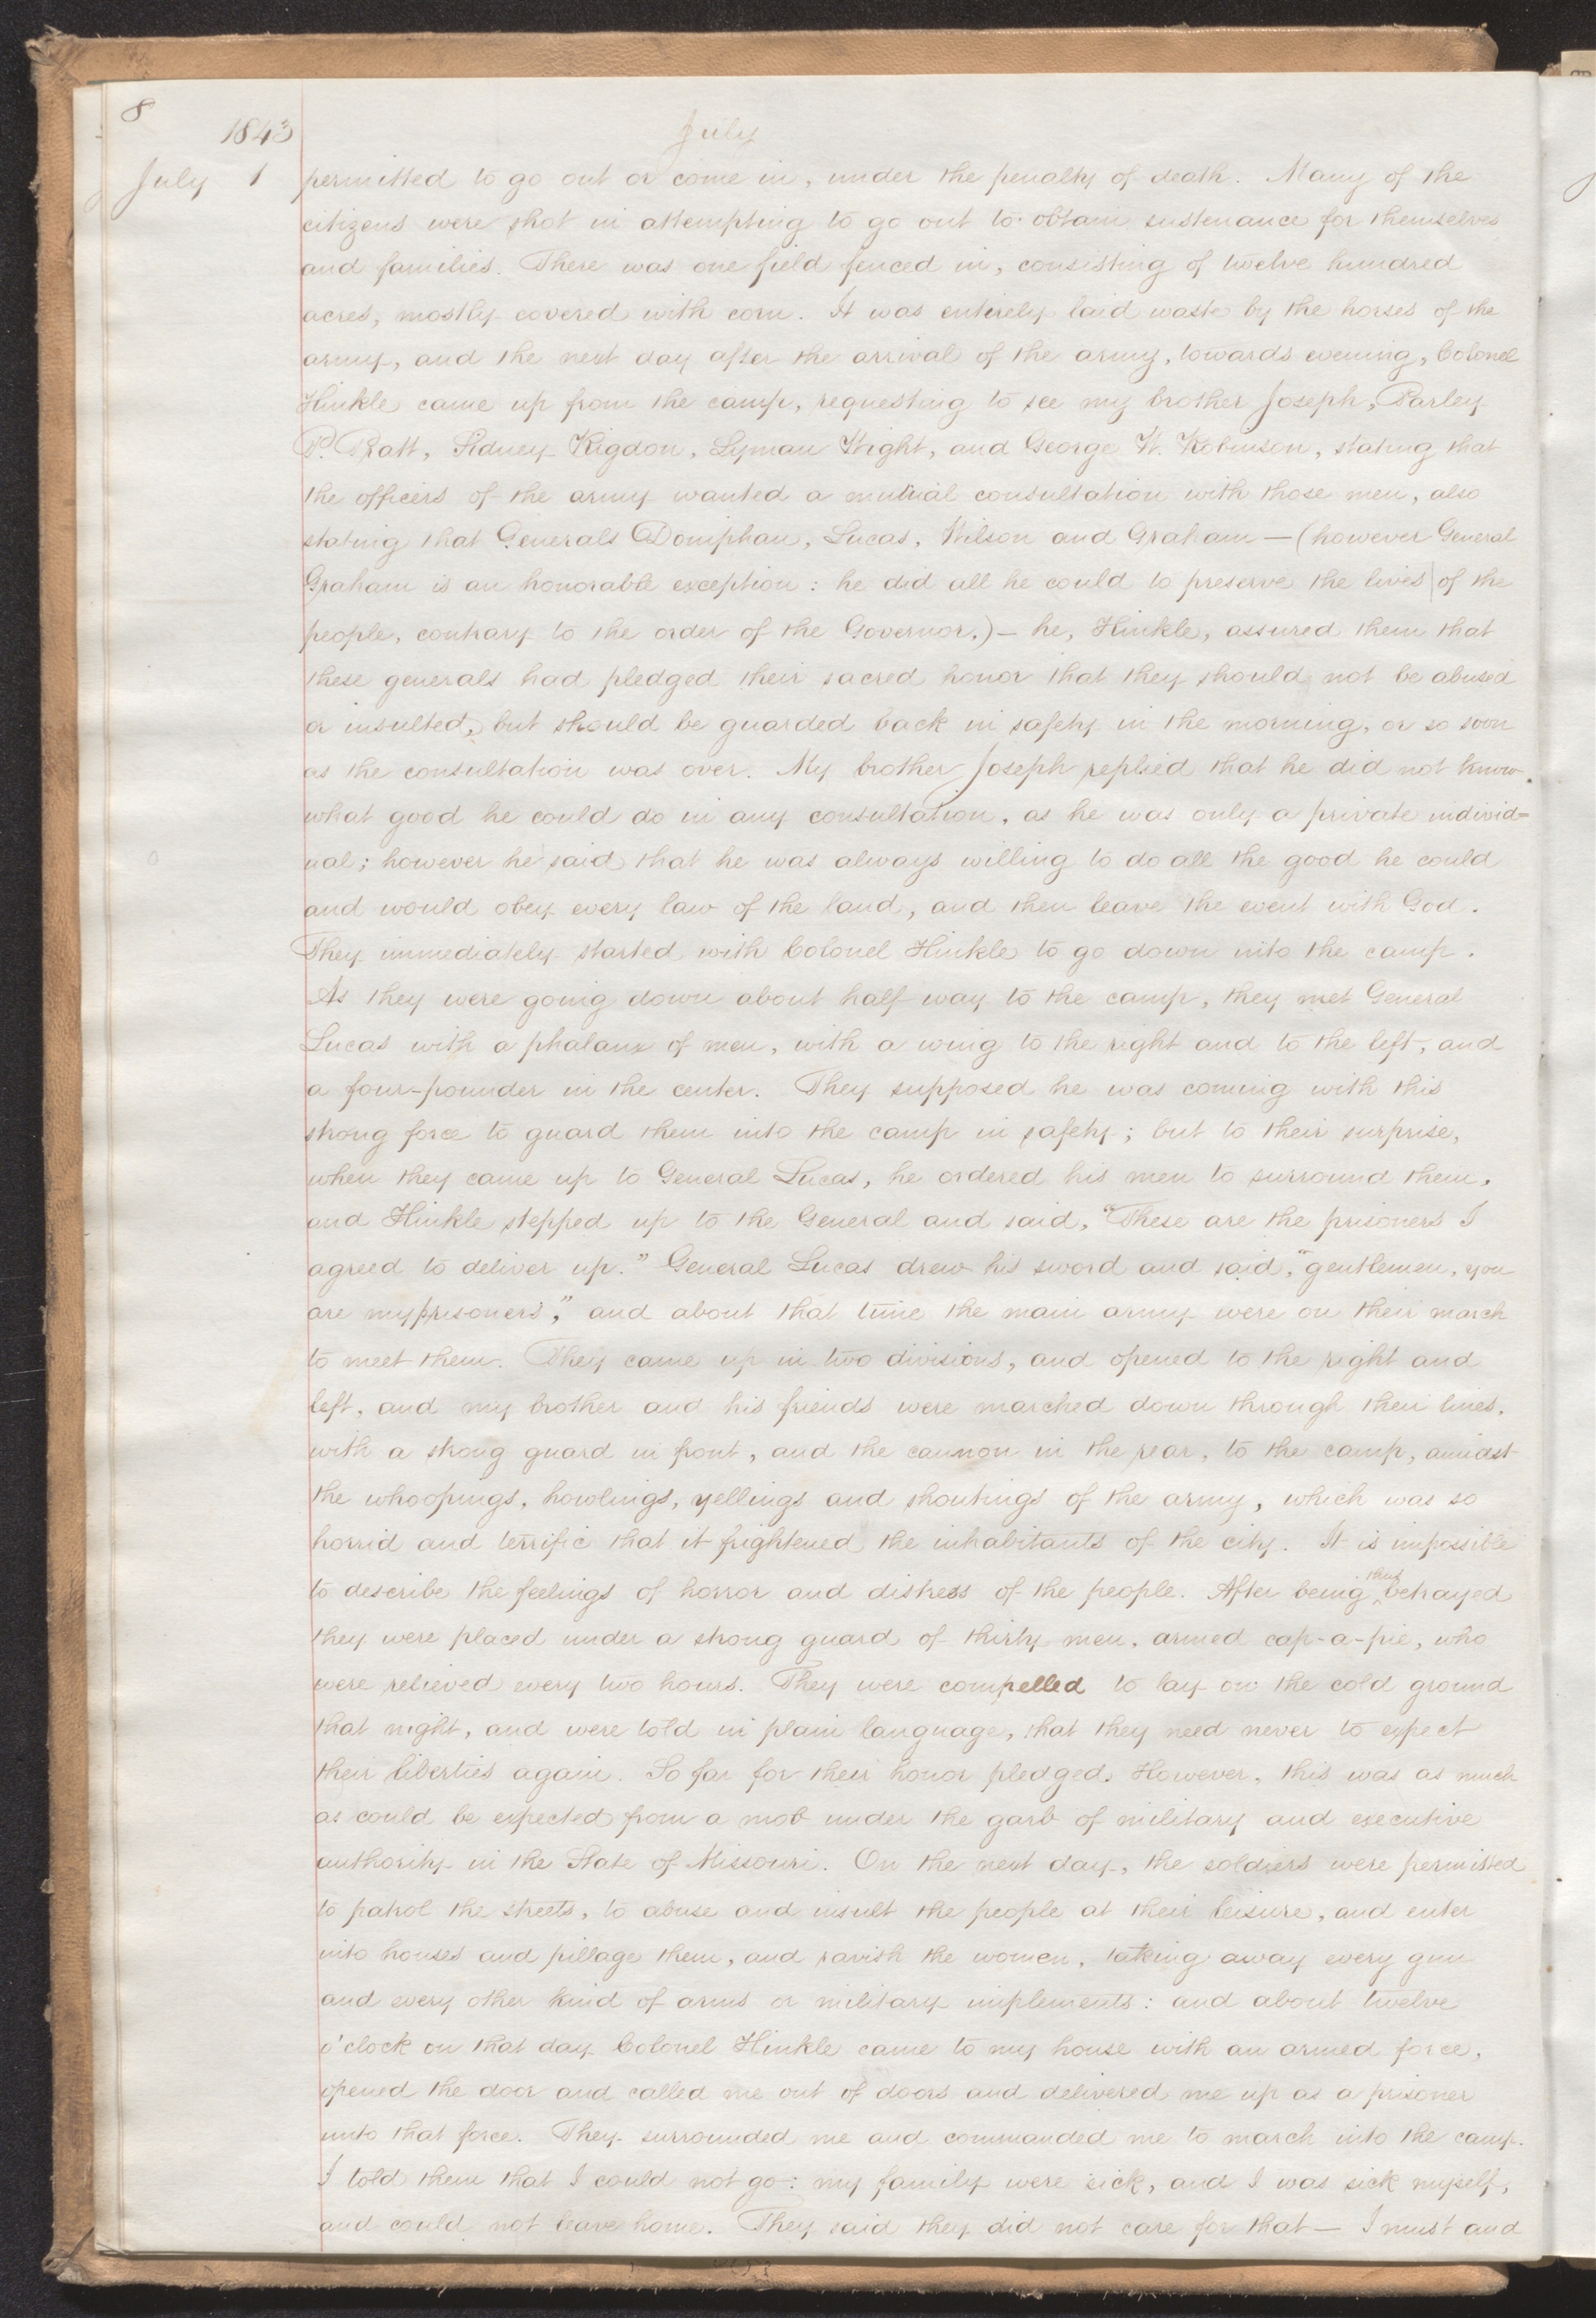 8
1843 July
July 1 permitted to go out or come in, under the penalty of death. Many of the
citizens were shot in attempting to go out to obtain sustenance for themselves
and families. There was one field fenced in, consisting of twelve hundred
acres, mostly covered with corn. It was entirely laid waste by the horses of the
army, and the next day after the arrival of the army, towards evening, Colonel
Hinkle came up from the camp, requesting to see my brother Joseph, Parley
P. Pratt, Sidney Rigdon, Lyman Wight, and George W. Robinson, stating that
the officers of the army wanted a mutual consultation with those men, also
stating that Generals Doniphan, Lucas, Wilson and Graham — (however General
Graham is an honorable exception: he did all he could to preserve the lives of the
people, contrary to the order of the Governor.) — he, Hinkle, assured them that
these generals had pledged their sacred honor that they should not be abused
or insulted, but should be guarded back in safety in the morning, or so soon
as the consultation was over. My brother Joseph replied that he did not know
what good he could do in any consultation, as he was only a private individ=
ual; however he said that he was always willing to do all the good he could
and would obey every law of the land, and then leave the event with God.
They immediately started with Colonel Hinkle to go down into the camp.
As they were going down about half way to the camp, they met General
Lucas with a phalanx of men, with a wing to the right and to the left, and
a four-pounder in the center. They supposed he was coming with this
strong force to guard them into the camp in safety; but to their surprise,
when they came up to General Lucas, he ordered his men to surround them,
and Hinkle stepped up to the General and said, "These are the prisoners I
agreed to deliver up." General Lucas drew his sword and said, "gentlemen, you
are my prisoners," and about that time the main army were on their march
to meet them. They came up in two divisions, and opened to the right and
left, and my brother and his friends were marched down through their lines,
with a strong guard in front, and the cannon in the rear, to the camp, amidst
the whoopings, howlings, yellings and shoutings of the army, which was so
horrid and terrific that it frightened the inhabitants of the city. It is impossible
to describe the feelings of horror and distress of the people. After being thus betrayed
they were placed under a strong guard of thirty men, armed cap-a-pie, who
were relieved every two hours. They were compelled to lay on the cold ground
that night, and were told in plain language, that they need never to expect
their liberties again. So far for their honor pledged. However, this was as much
as could be expected from a mob under the garb of military and executive
authority in the State of Missouri. On the next day, the soldiers were permitted
to patrol the streets, to abuse and insult the people at their leisure, and enter
into houses and pillage them, and ravish the women, taking away every gun
and every other kind of arms or military implements: and about twelve
o'clock on that day Colonel Hinkle came to my house with an armed force,
opened the door and called me out of doors and delivered me up as a prisoner
unto that force. They surrounded me and commanded me to march into the camp.
I told them that I could not go: my family were sick, and I was sick myself,
and could not leave home. They said they did not care for that — I must and